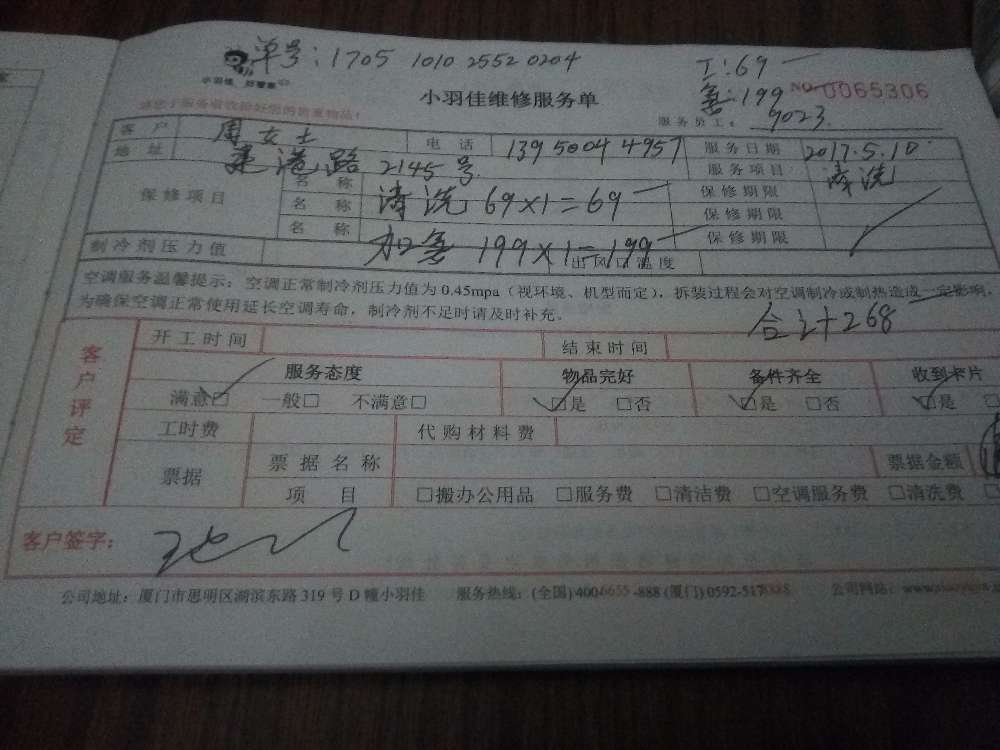 单号：1705 1010 2552 0204
工：69
小羽佳 好管家
小羽佳维修服务单
氟：199
NO 0065306
服务员工： 9023
客户 周女士 电话 13950044957 服务日期 2017.5.10
地址 建港路 2145号 服务项目 清洗
保修项目
名称 清洗 69×1=69 保修期限
名称 保修期限
名称 加氟 199×1=199 保修期限
制冷剂压力值 出风口温度
空调服务温馨提示：空调正常制冷剂压力值为0.45mpa（视环境、机型而定），拆装过程会对空调制冷或制热造成一定影响，
为确保空调正常使用延长空调寿命，制冷剂不足时请及时补充。
合计268
客户评定
开工时间 结束时间
服务态度 物品完好 备件齐全 收到卡片
满意□ 一般□ 不满意□ □是 □否 □是 □否 □是
工时费 代购材料费
票据 票据名称 票据金额
项目 □搬办公用品 □服务费 □清洁费 □空调服务费 □清洗费
客户签字：
公司地址：厦门市思明区湖滨东路319号D幢小羽佳 服务热线：(全国)4006655-888 (厦门)0592-5170888 公司网站：